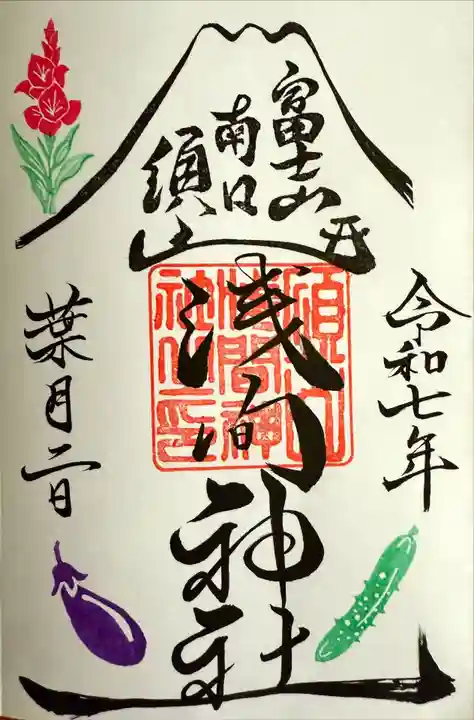 富士山
南口
須山
浅间神社
須山浅間神社之印
令和七年
葉月二日